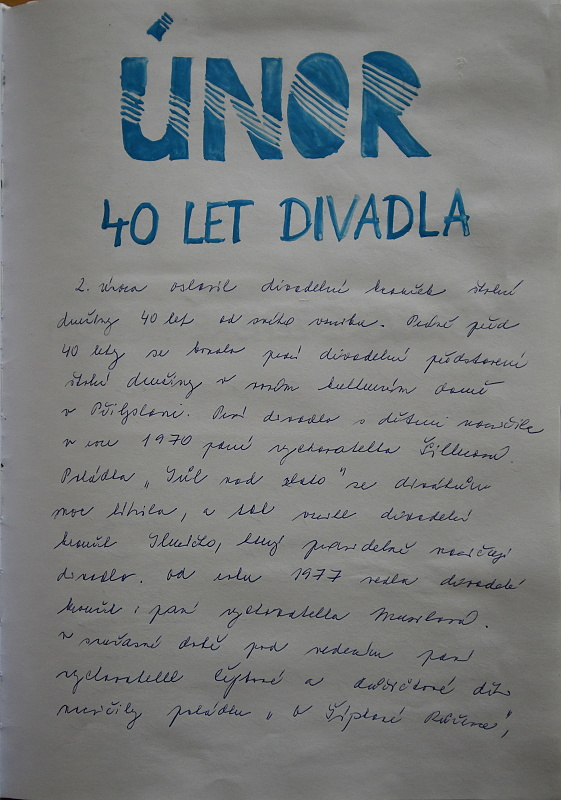 ÚNOR
40 LET DIVADLA
2. února oslavil divadelní kroužek školní
družiny 40 let od svého vzniku. Právě před
40 lety se konalo první divadelní představení
školní družiny v novém kulturním domě
v Přibyslavi. První divadlo s dětmi nacvičila
v roce 1970 paní vychovatelka
Pohádka „Sůl nad zlato" se divákům
moc líbila, a tak vznikl divadelní
kroužek který pravidelně nacvičuje
divadlo. Od roku 1977 vedla divadelní
kroužek i paní vychovatelka Musilová.
V současné době pod vedením paní
vychovatelk a děti
nacvičily pohádku „O Šípkové Růžence",